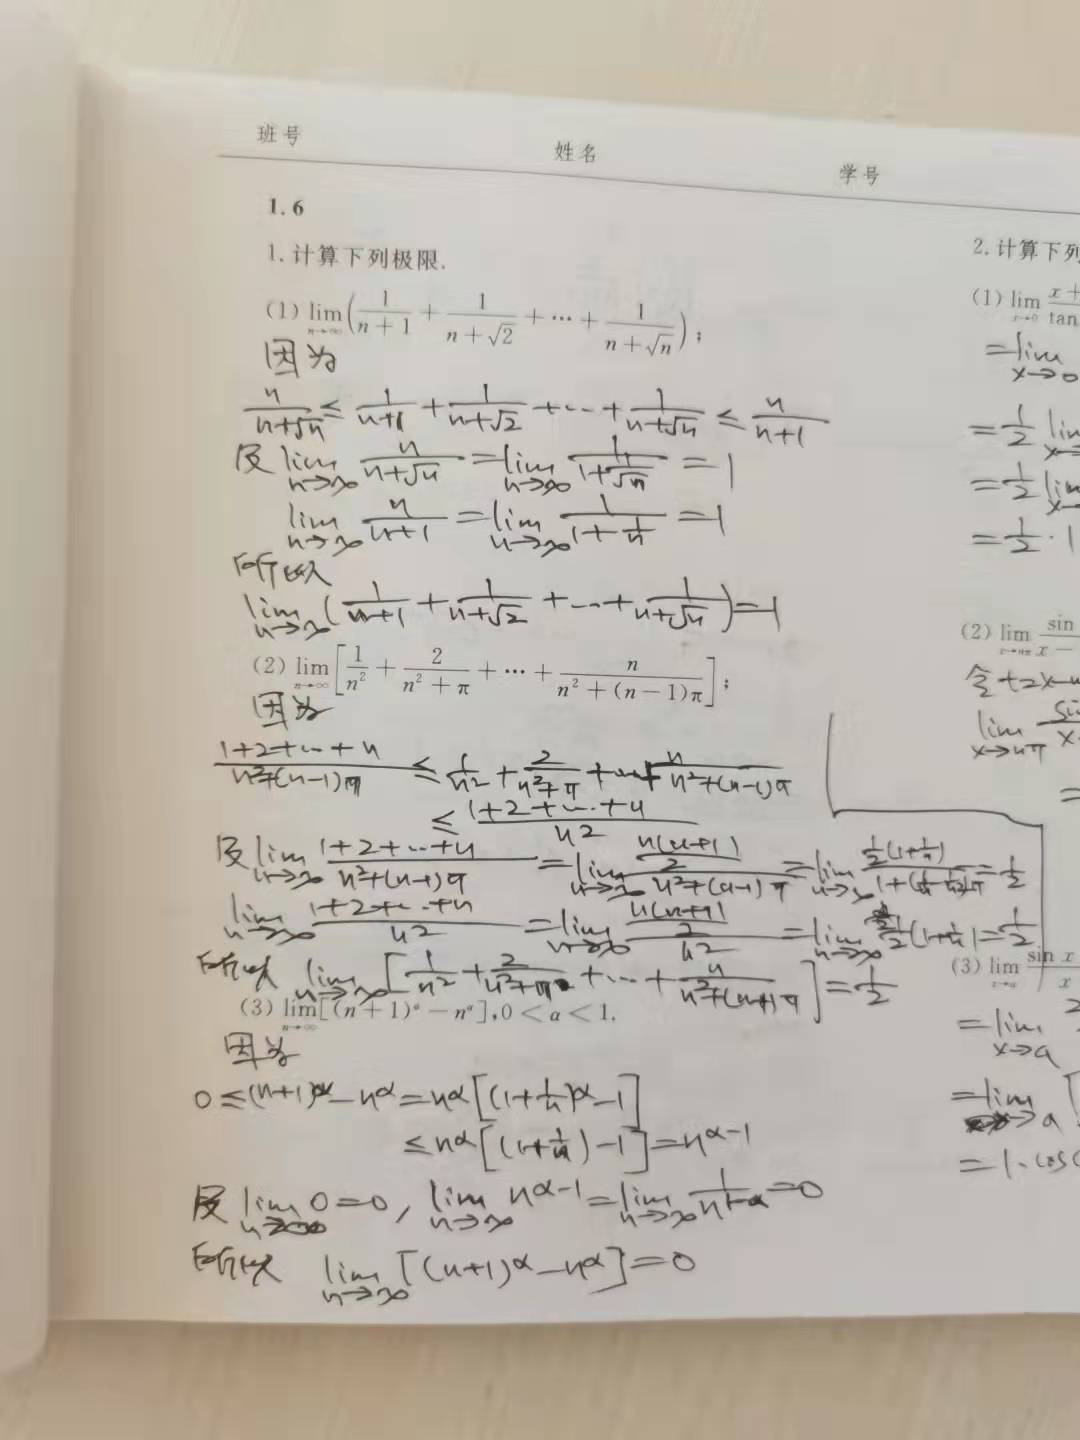 班号 姓名 学号
1.6
1. 计算下列极限.
(1) lim_{n→∞}(1/(n+1) + 1/(n+√2) + ⋯ + 1/(n+√n));
因为
n/(n+√n) ≤ 1/(n+1) + 1/(n+√2) + ⋯ + 1/(n+√n) ≤ n/(n+1)
及 lim_{n→∞} n/(n+√n) = lim_{n→∞} 1/(1+1/√n) = 1
lim_{n→∞} n/(n+1) = lim_{n→∞} 1/(1+1/n) = 1
所以
lim_{n→∞}(1/(n+1) + 1/(n+√2) + ⋯ + 1/(n+√n)) = 1
(2) lim_{n→∞}[1/n² + 2/(n²+π) + ⋯ + n/(n²+(n-1)π)];
因为
(1+2+⋯+n)/(n²+(n-1)π) ≤ 1/n² + 2/(n²+π) + ⋯ + n/(n²+(n-1)π)
≤ (1+2+⋯+n)/n²
及 lim_{n→∞} (1+2+⋯+n)/(n²+(n-1)π) = lim_{n→∞} (n(n+1)/2)/(n²+(n-1)π) = lim_{n→∞} (½(1+1/n))/(1+(1/n-1/n²)π) = ½
lim_{n→∞} (1+2+⋯+n)/n² = lim_{n→∞} (n(n+1)/2)/n² = lim_{n→∞} ½(1+1/n) = ½
所以 lim_{n→∞}[1/n² + 2/(n²+π) + ⋯ + n/(n²+(n-1)π)] = ½
(3) lim_{n→∞}[(n+1)^α - n^α], 0<α<1.
因为
0 ≤ (n+1)^α - n^α = n^α[(1+1/n)^α - 1]
≤ n^α[(1+1/n) - 1] = n^{α-1}
及 lim_{n→∞} 0 = 0, lim_{n→∞} n^{α-1} = lim_{n→∞} 1/n^{1-α} = 0
所以 lim_{n→∞}[(n+1)^α - n^α] = 0
2. 计算下列
(1) lim_{x→0} x+ tan
= lim_{x→0}
= ½ lim
= ½ lim
= ½ · 1
(2) lim_{x→nπ} sin x-
lim_{x→nπ} sin x-
=
(3) lim_{x→a} sin x x
= lim_{x→a} 2
= lim_{x→a} [
= 1·cos